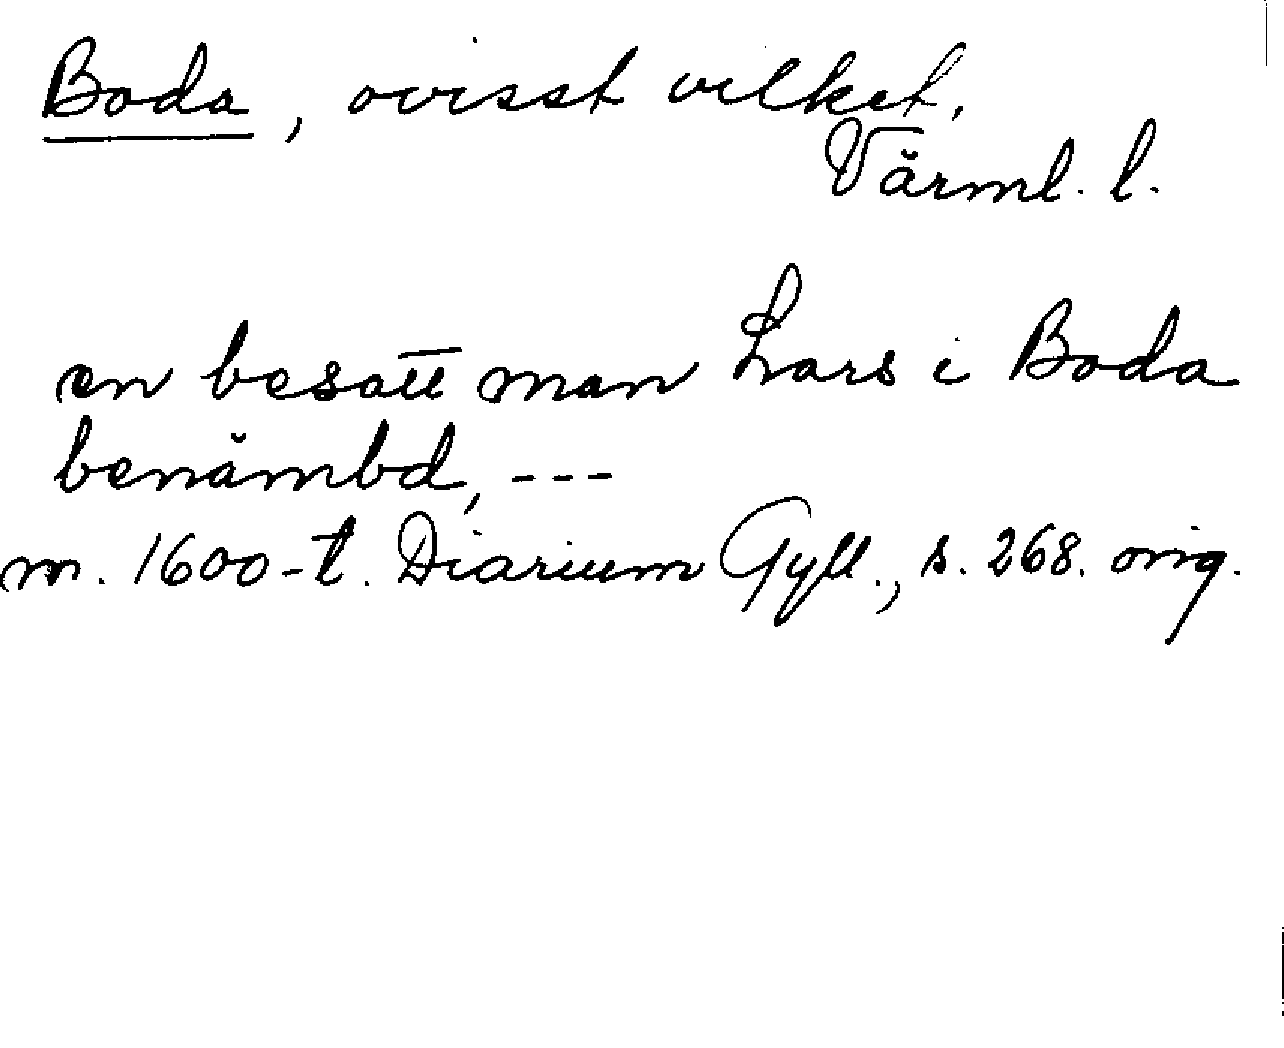 Boda, ovisst vilket.
Värml. l.
en besatt man Lars i Boda
benämbd, ---
m. 1600-t. Diarium Gyll., s. 268. orig.